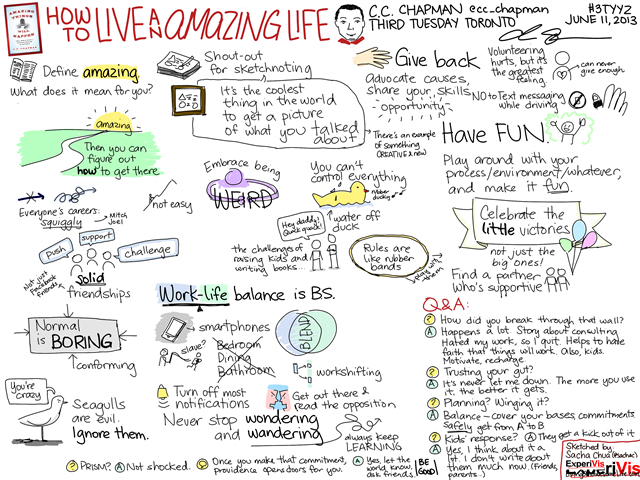 AMAZING
THINGS
WILL
HAPPEN
HOW TO LIVE AN AMAZING LIFE
C.C. CHAPMAN @cc_chapman
THIRD TUESDAY TORONTO
#3TYYZ
JUNE 11, 2013
Define amazing.
What does it mean for you?
amazing
Then you can
figure out
how to get there
Shout-out
for sketchnoting
It's the coolest
thing in the world
to get a picture
of what you talked
about
Give back
advocate causes,
share your skills
opportunity
There's an example
of something
CREATIVE & new
Volunteering
hurts, but it's
the greatest
feeling.
can never
give enough
NO to Text messaging
while driving
Have FUN
Play around with your
process/environment/whatever,
and make it fun.
Celebrate the
little victories
not just the
big ones!
Find a partner
who's supportive
Everyone's careers:
squiggly
Mitch
Joel
not easy
Embrace being
WEIRD
You can't
control everything
rubber
ducky
water off
duck
push
support
challenge
Not just
Facebook
friends
solid
friendships
Hey daddy!
Quack quack!
the challenges of
raising kids and
writing books...
Rules are
like rubber
bands
play with
them
Work-life balance is BS.
Normal
is BORING
conforming
smartphones
slave?
Bedroom
Dining
Bathroom
BLEND
workshifting
You're
crazy
Seagulls
are evil.
Ignore them.
Turn off most
notifications
Get out there &
read the opposition
Never stop wondering
and wandering
always keep
LEARNING
Q&A:
? How did you break through that wall?
A Happens a lot. Story about consulting
Hated my work, so I quit. Helps to have
faith that things will work. Also, kids.
Motivate, recharge.
? Trusting your gut?
A It's never let me down. The more you use
it, the better it gets.
? Planning? Winging it?
A Balance - cover your bases, commitments.
Safely get from A to B
? Kids' response? A They get a kick out of it
A Yes, I think about it a
lot. I don't write about
them much now. (friends,
parents...)
? PRISM? A Not shocked.
Once you make that commitment,
providence opens doors for you.
A Yes, let the
world know,
ask friends.
BE
GOOD
Sketched by:
Sacha Chua (@sachac)
ExperiVis
ExperiVis